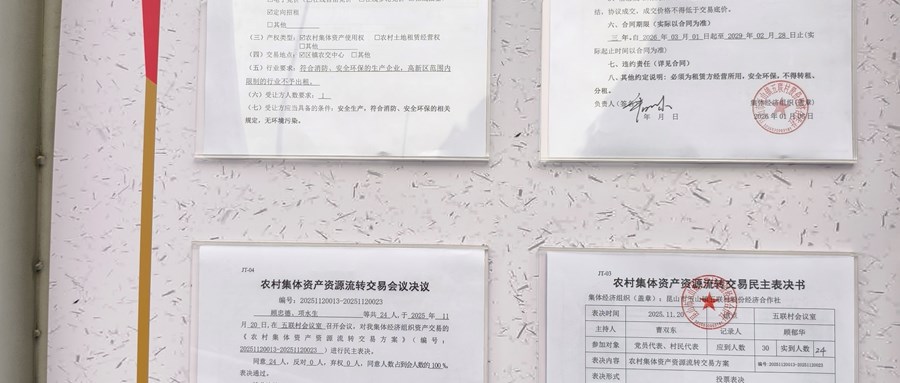 ☑定向招租
□其他
(三)产权类型:☑农村集体资产使用权 □农村土地租赁经营权
□其他
(四)交易地点:☑区镇农交中心 □其他
(五)行业要求:符合消防、安全环保的生产企业,高新区范围内
限制的行业不予出租。
(六)受让方人数要求:1
(七)受让方应当具备的条件:安全生产,符合消防、安全环保的相关
规定,无环境污染。
结、协议成交,成交价格不得低于交易底价。
六、合同期限(实际以合同为准)
三年,自2026年03月01日起至2029年02月28日止(实
际起止时间以合同为准)
七、违约责任(详见合同)
八、其他约定说明:必须为租赁方经营所用,安全环保,不得转租、
分租。
负责人(签
集体经济组织(盖章)
年 月 日
2026年01月06日
JT-04
农村集体资产资源流转交易会议决议
编号:20251120013-20251120023
顾忠德、项水生 等共24人,于2025年11
月20日,在五联村会议室召开会议,对我集体经济组织资产交易的
《农村集体资产资源流转交易方案》(编号:
20251120013-20251120023)进行民主表决。
同意24人,反对0人,弃权0人,同意人数占到会人数的100%
表决通过。
JT-03
农村集体资产资源流转交易民主表决书
集体经济组织(盖章):昆山市玉山镇五联村股份经济合作社
表决时间 2025.11.20 五联村会议室
主持人 曹双东 记录人 顾郁华
参加对象 党员代表、村民代表 应到人数 30 实到人数 24
表决内容 农村集体资产资源流转交易方案 编号:20251120013-20251120023
表决形式 投票表决